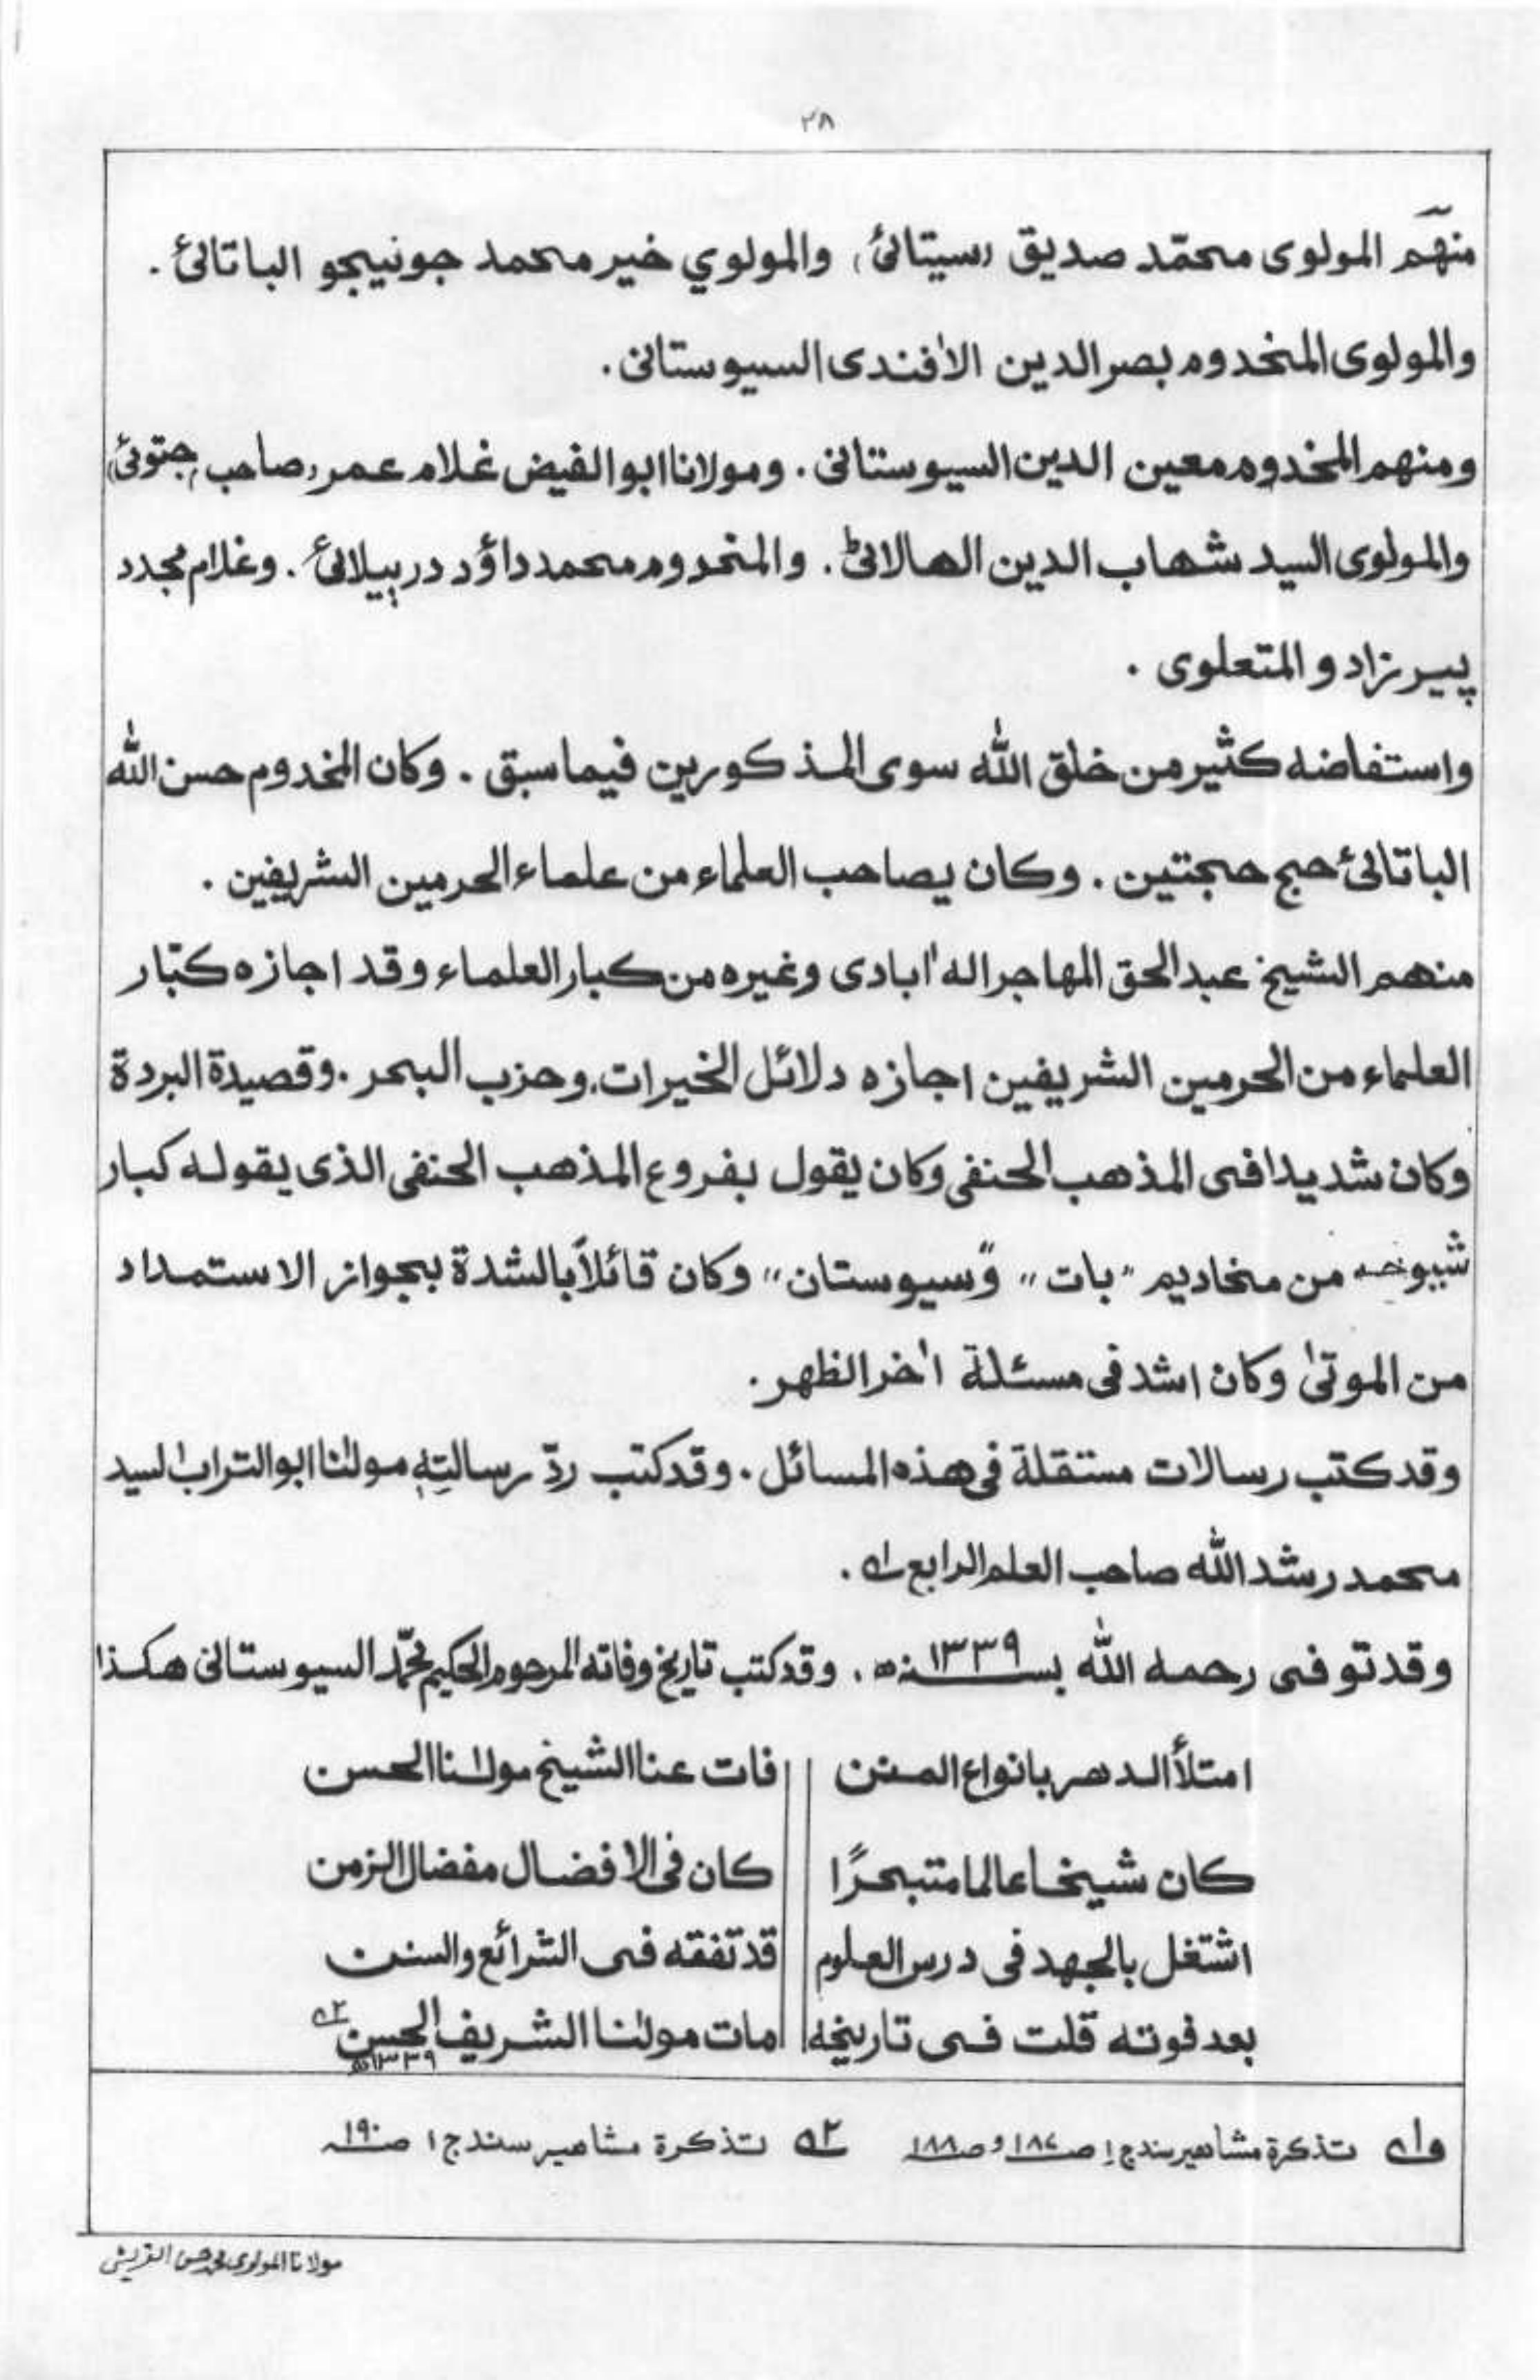 ٢٨
منهم المولوی محمّد صدیق (سیتائیؒ) والمولوي خیر محمد جونیجو الباتائیؒ.
والمولوی المخدوم بصر الدین الاٰفندی السیوستانی.
ومنهم المخدوم معین الدین السیوستانی. ومولانا ابوالفیض غلام عمر (صاحب جتوئی)
والمولوی السید شهاب الدین الهالائیؒ. والمخدوم محمد داؤد درپیلائیؒ. وغلام مجدد
پیرزادو المتعلوی.
واستفاضه کثیر من خلق اللّٰه سوی المذکورین فیما سبق. وکان المخدوم حسن اللّٰه
الباتائیؒ حج حجتین. وکان یصاحب العلماء من علماء الحرمین الشریفین.
منهم الشیخ عبدالحق المهاجر الهٰ ابادی وغیره من کبار العلماء وقد اجازه کبّار
العلماء من الحرمین الشریفین اجازه دلائل الخیرات، وحزب البحر. وقصیدة البردة
وکان شدیدا فی المذهب الحنفی وکان یقول بفروع المذهب الحنفی الذی یقوله کبار
شیوخه من مخادیم "بات" و"سیوستان" وکان قائلاً بالشدة بجواز الاستمداد
من الموتیٰ وکان اشد فی مسئلة اٰخر الظهر.
وقد کتب رسالات مستقلة فی هذه المسائل. وقد کتب ردّ رسالتِهٖ مولٰنا ابوالتراب السید
محمد رشد اللّٰه صاحب العلم الرابع ١ه.
وقد توفی رحمه اللّٰه بسنه ١٣٣٩ه. وقد کتب تاریخ وفاته المرحوم الحکیم محمّد السیوستانی هکذا
امتلأ الدهر بانواع المحن || فات عنا الشیخ مولٰنا الحسن
کان شیخا عالما متبحرًا || کان فی الافضال مفضال الزمن
اشتغل بالجهد فی درس العلوم || قد تفقه فی الشرائع والسنن
بعد فوته قلت فی تاریخه || مات مولٰنا الشریف الحسن ٢ه
١٣٣٩ه
و١ه تذکرة مشاهیر سندج ١ ص١٨٧ و ص١٨٨ ٢ه تذکرة مشاهیر سندج ١ ص١٩٠
مولانا المولوی محمد حسن القریشی